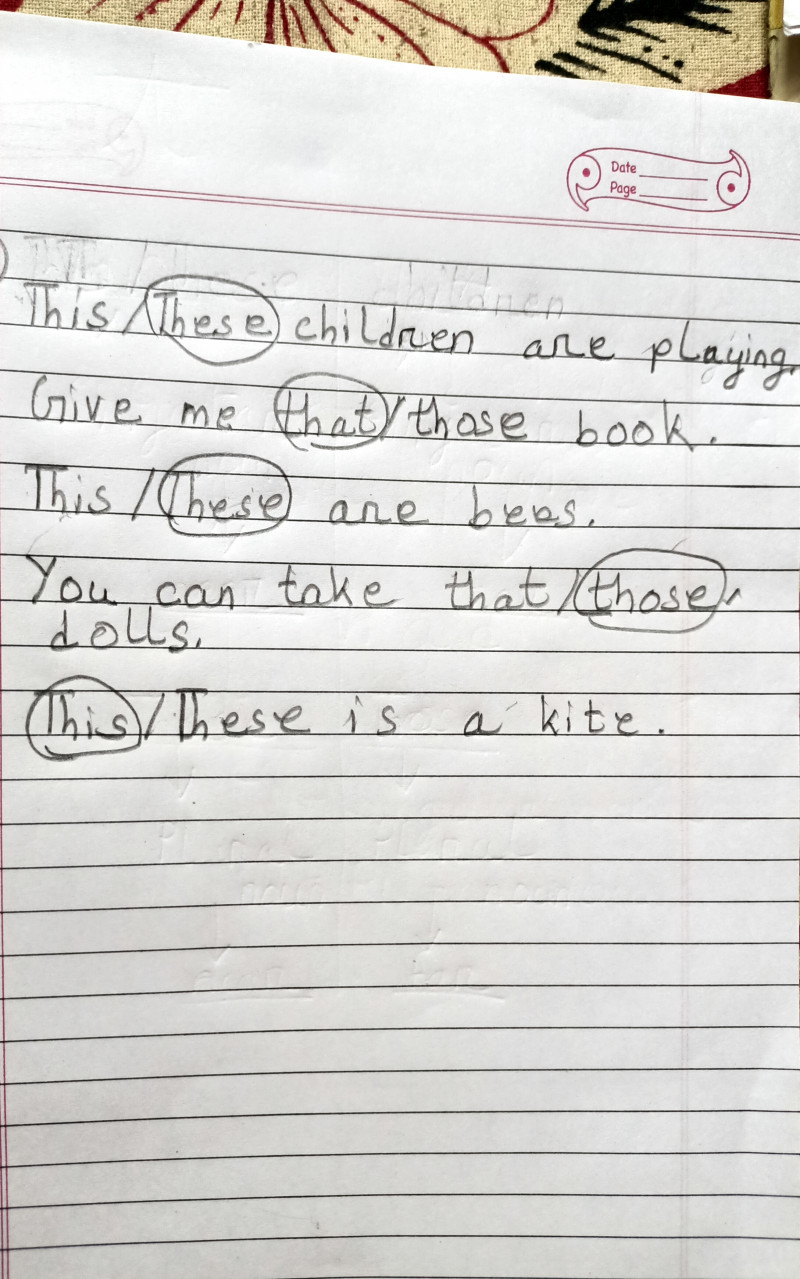 Date
Page
This / These children are playing.
Give me that / those book.
This / These are bees.
You can take that / those
dolls.
This / These is a kite.